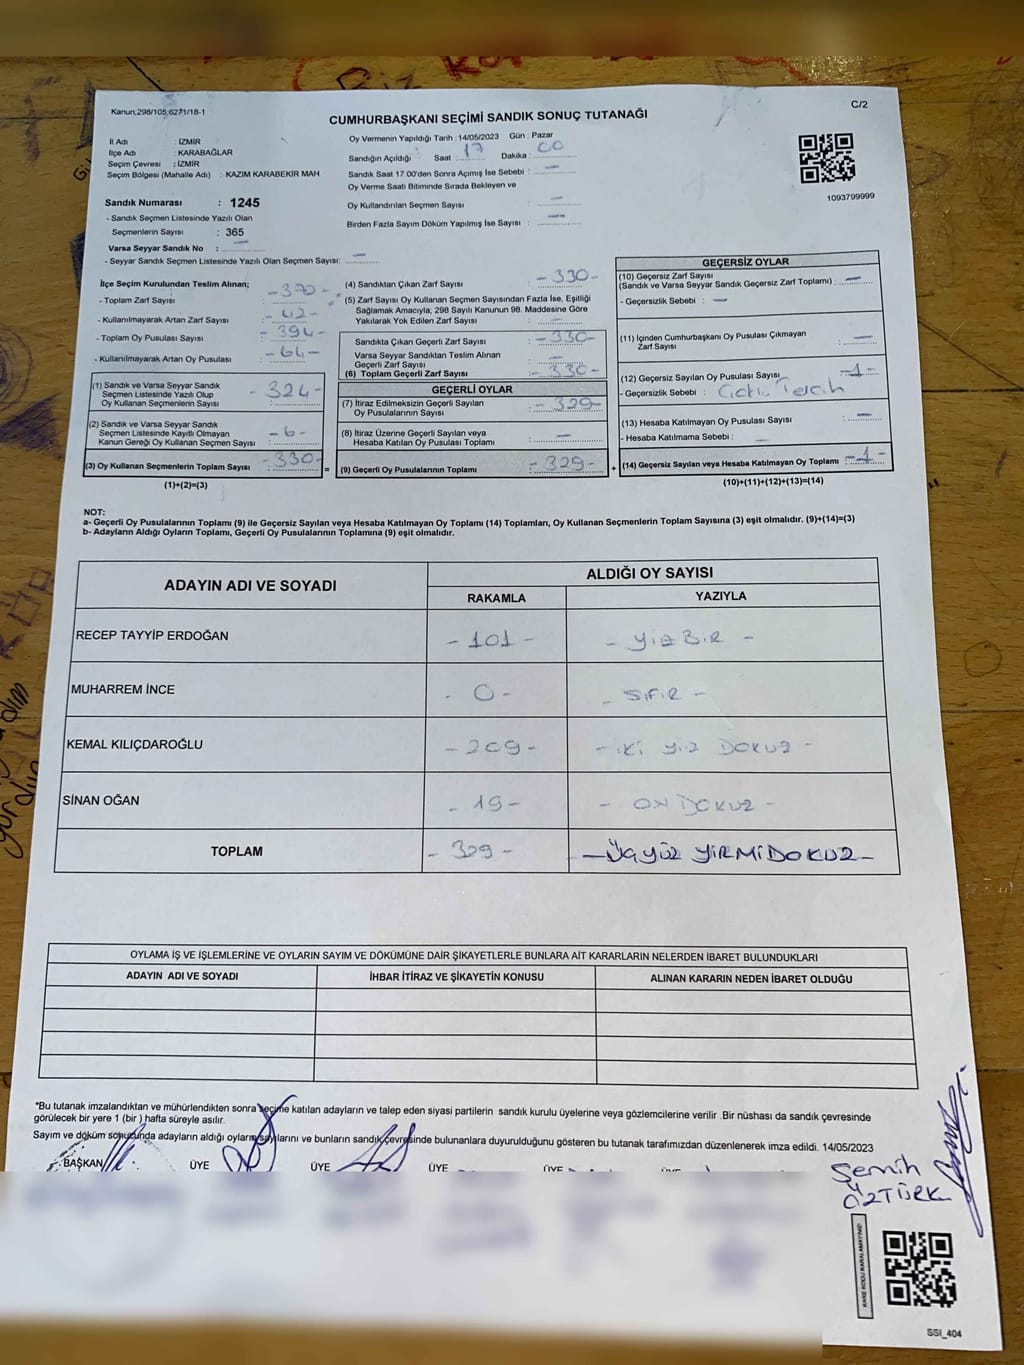 Kanun:298/105,6271/18-1
CUMHURBAŞKANI SEÇİMİ SANDIK SONUÇ TUTANAĞI
C/2
İl Adı : İZMİR
İlçe Adı : KARABAĞLAR
Seçim Çevresi : İZMİR
Seçim Bölgesi (Mahalle Adı) : KAZIM KARABEKİR MAH
Sandık Numarası : 1245
- Sandık Seçmen Listesinde Yazılı Olan
Seçmenlerin Sayısı : 365
Varsa Seyyar Sandık No : —
- Seyyar Sandık Seçmen Listesinde Yazılı Olan Seçmen Sayısı: —
Oy Vermenin Yapıldığı Tarih : 14/05/2023 Gün : Pazar
Sandığın Açıldığı Saat : 17 Dakika : 00
Sandık Saat 17:00'den Sonra Açımış İse Sebebi : —
Oy Verme Saati Bitiminde Sırada Bekleyen ve
Oy Kullandırılan Seçmen Sayısı : —
Birden Fazla Sayım Döküm Yapılmış İse Sayısı : —
1093799999
İlçe Seçim Kurulundan Teslim Alınan;
- Toplam Zarf Sayısı : -370-
- Kullanılmayarak Artan Zarf Sayısı : -42-
- Toplam Oy Pusulası Sayısı : -394-
- Kullanılmayarak Artan Oy Pusulası : -64-
(1) Sandık ve Varsa Seyyar Sandık
Seçmen Listesinde Yazılı Olup
Oy Kullanan Seçmenlerin Sayısı : -324-
(2) Sandık ve Varsa Seyyar Sandık
Seçmen Listesinde Kayıtlı Olmayan
Kanun Gereği Oy Kullanan Seçmen Sayısı : -6-
(3) Oy Kullanan Seçmenlerin Toplam Sayısı : -330-
(1)+(2)=(3)
(4) Sandıktan Çıkan Zarf Sayısı : -330-
(5) Zarf Sayısı Oy Kullanan Seçmen Sayısından Fazla İse, Eşitliği
Sağlamak Amacıyla; 298 Sayılı Kanunun 98. Maddesine Göre
Yakılarak Yok Edilen Zarf Sayısı : —
Sandıkta Çıkan Geçerli Zarf Sayısı : -330-
Varsa Seyyar Sandıktan Teslim Alınan
Geçerli Zarf Sayısı : —
(6) Toplam Geçerli Zarf Sayısı : -330-
GEÇERLİ OYLAR
(7) İtiraz Edilmeksizin Geçerli Sayılan
Oy Pusulalarının Sayısı : -329-
(8) İtiraz Üzerine Geçerli Sayılan veya
Hesaba Katılan Oy Pusulası Toplamı : —
= (9) Geçerli Oy Pusulalarının Toplamı : -329- +
GEÇERSİZ OYLAR
(10) Geçersiz Zarf Sayısı
(Sandık ve Varsa Seyyar Sandık Geçersiz Zarf Toplamı) : —
- Geçersizlik Sebebi : —
(11) İçinden Cumhurbaşkanı Oy Pusulası Çıkmayan
Zarf Sayısı : —
(12) Geçersiz Sayılan Oy Pusulası Sayısı : -1-
- Geçersizlik Sebebi : Tercih
(13) Hesaba Katılmayan Oy Pusulası Sayısı : —
- Hesaba Katılmama Sebebi : —
(14) Geçersiz Sayılan veya Hesaba Katılmayan Oy Toplamı : -1-
(10)+(11)+(12)+(13)=(14)
NOT:
a- Geçerli Oy Pusulalarının Toplamı (9) ile Geçersiz Sayılan veya Hesaba Katılmayan Oy Toplamı (14) Toplamları, Oy Kullanan Seçmenlerin Toplam Sayısına (3) eşit olmalıdır. (9)+(14)=(3)
b- Adayların Aldığı Oyların Toplamı, Geçerli Oy Pusulalarının Toplamına (9) eşit olmalıdır.
ADAYIN ADI VE SOYADI
ALDIĞI OY SAYISI
RAKAMLA YAZIYLA
RECEP TAYYİP ERDOĞAN -101- - YÜZ BİR -
MUHARREM İNCE - 0 - - SIFIR -
KEMAL KILIÇDAROĞLU -209- - İKİ YÜZ DOKUZ -
SİNAN OĞAN - 19 - - ON DOKUZ -
TOPLAM - 329 - - ÜÇYÜZ YİRMİDOKUZ -
OYLAMA İŞ VE İŞLEMLERİNE VE OYLARIN SAYIM VE DÖKÜMÜNE DAİR ŞİKAYETLERLE BUNLARA AİT KARARLARIN NELERDEN İBARET BULUNDUKLARI
ADAYIN ADI VE SOYADI İHBAR İTİRAZ VE ŞİKAYETİN KONUSU ALINAN KARARIN NEDEN İBARET OLDUĞU
*Bu tutanak imzalandıktan ve mühürlendikten sonra seçime katılan adayların ve talep eden siyasi partilerin sandık kurulu üyelerine veya gözlemcilerine verilir .Bir nüshası da sandık çevresinde
görülecek bir yere 1 (bir ) hafta süreyle asılır.
Sayım ve döküm sonucunda adayların aldığı oyların sayılarını ve bunların sandık çevresinde bulunanlara duyurulduğunu gösteren bu tutanak tarafımızdan düzenlenerek imza edildi. 14/05/2023
BAŞKAN ÜYE ÜYE ÜYE ÜYE ÜYE
Semih
ÖZTÜRK
KARE KODU KARALAMAYINIZ!
SSI_404